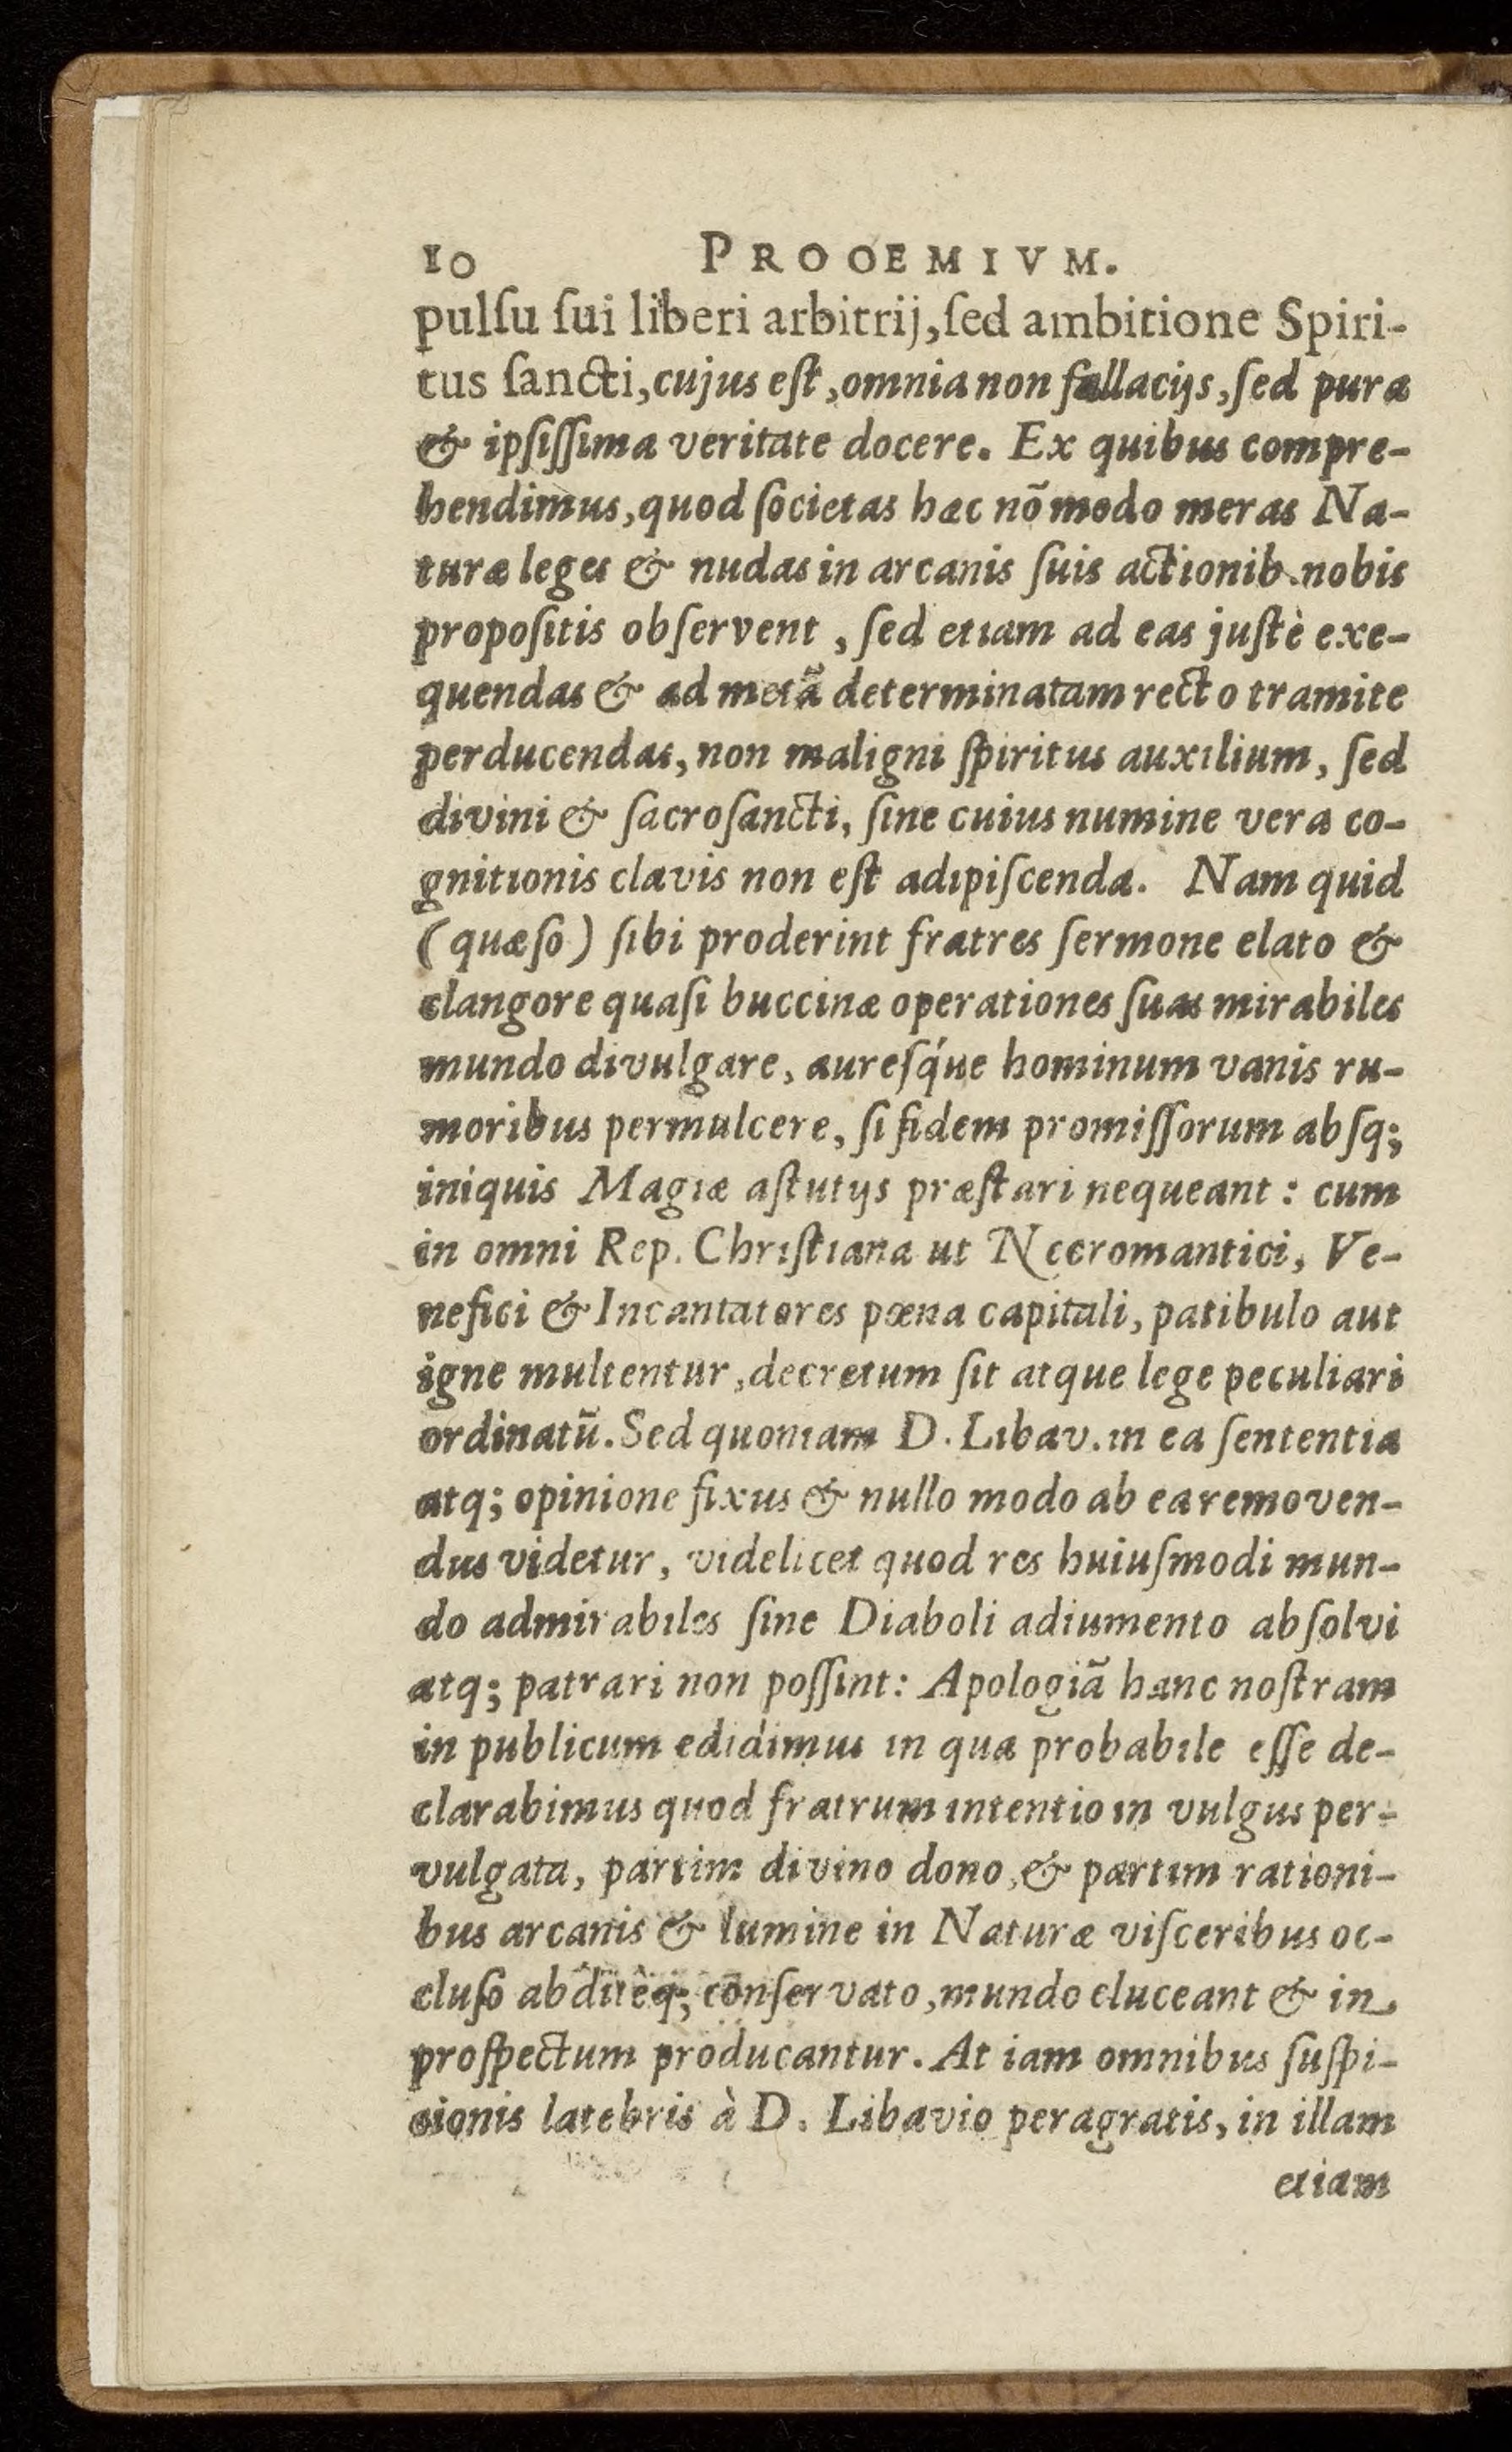 10 PROOEMIVM.
pulſu ſui liberi arbitrij,ſed ambitione Spiri-
tus ſancti,cujus eſt,omnia non fallacijs,ſed pura
& ipſiſſima veritate docere. Ex quibus compre-
hendimus,quod ſocietas hæc nõ modo meras Na-
turæ leges & nudas in arcanis ſuis actionib.nobis
propoſitis obſervent , ſed etiam ad eas juſtè exe-
quendas & ad metã determinatam recto tramite
perducendas, non maligni ſpiritus auxilium, ſed
divini & ſacroſancti, ſine cuius numine vera co-
gnitionis clavis non eſt adipiſcenda. Nam quid
(quæſo) ſibi proderint fratres ſermone elato &
clangore quaſi buccinæ operationes ſuas mirabiles
mundo divulgare, aureſq́ue hominum vanis ru-
moribus permulcere, ſi fidem promiſſorum abſq;
iniquis Magiæ aſtutijs præſtari nequeant : cum
in omni Rep. Chriſtiana ut Neeromantici, Ve-
nefici & Incantatores pœna capitali, patibulo aut
igne multentur,decretum ſit atque lege peculiari
ordinatũ. Sed quoniam D. Libav. in ea ſententia
atq; opinione fixus & nullo modo ab ea removen-
dus videtur, videlicet quod res huiuſmodi mun-
do admirabiles ſine Diaboli adiumento abſolvi
atq; patrari non poſſint: Apologiã hanc noſtram
in publicum edidimus in qua probabile eſſe de-
clarabimus quod fratrum intentio in vulgus per-
vulgata, partim divino dono,& partim rationi-
bus arcanis & lumine in Naturæ viſceribus oc-
cluſo abditèq; conſervato,mundo eluceant & in
proſpectum producantur. At iam omnibus ſuſpi-
cionis latebris à D. Libavio peragratis, in illam
etiam